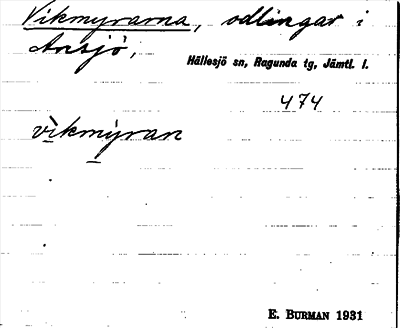 Vikmyrarna, odlingar i
Ansjö,
Hällesjö sn, Ragunda tg, Jämtl. l.
474
vìkmýran
E. BURMAN 1931